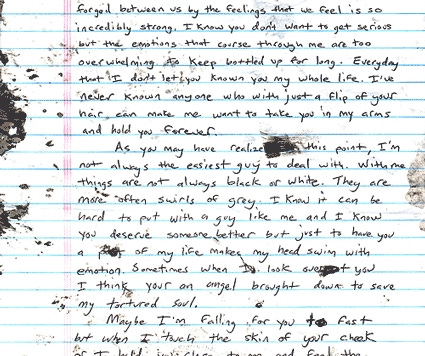 forged between us by the feelings that we feel is so
incredibly strong. I know you don't want to get serious
but the emotions that course through me are too
overwhelming to keep bottled up for long. Everyday
that I don't let you known you my whole life. I've
never known anyone who with just a flip of your
hair can make me want to take you in my arms
and hold you forever.
As you may have realize this point, I'm
not always the easiest guy to deal with. With me
things are not always black or white. They are
more often swirls of grey. I know it can be
hard to put with a guy like me and I know
you deserve someone better but just to have you
a of my life makes my head swim with
emotion. Sometimes when I look at you
I think your an angel brought down to save
my tortured soul.
Maybe I'm falling for you to fast
but when I touch the skin of your cheek